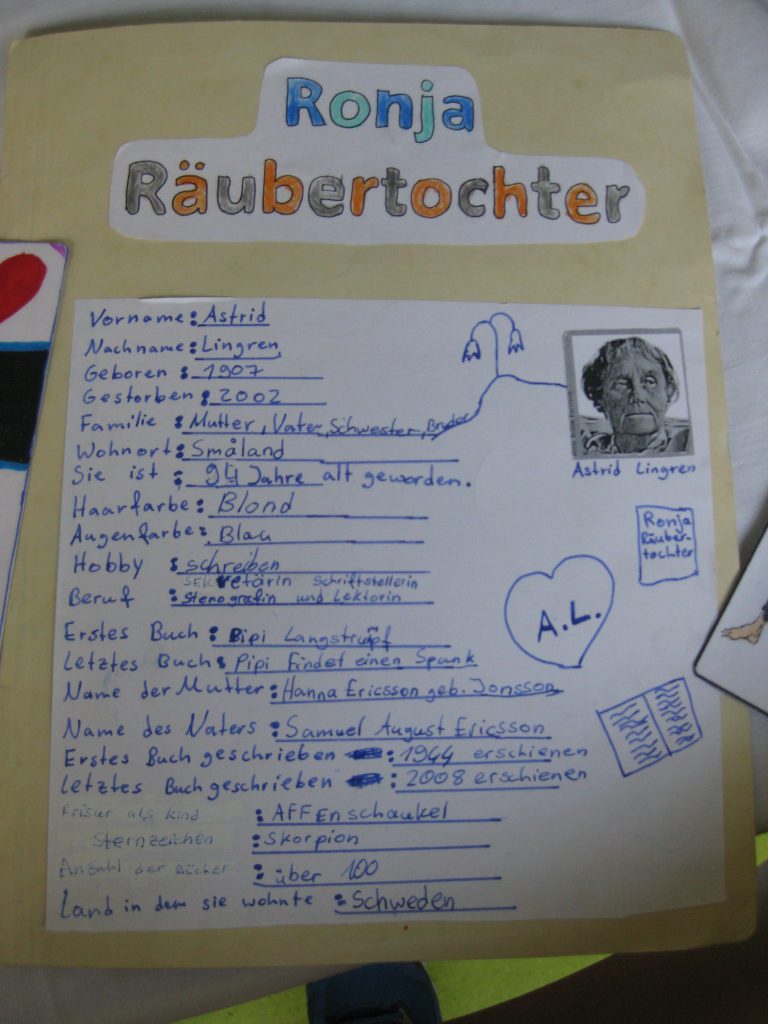 Ronja
Räubertochter
Vorname: Astrid
Nachname: Lingren
Geboren: 1907
Gestorben: 2002
Familie: Mutter, Vater, Schwester, Bruder
Wohnort: Småland
Sie ist: 94 Jahre alt geworden.
Astrid Lingren
Haarfarbe: Blond
Augenfarbe: Blau
Hobby: schreiben
Ronja
Räuber-
tochter
SEKretärin Schriftstellerin
Beruf: Stenografin und Lektorin
A.L.
Erstes Buch: Pipi Langstrumpf
Letztes Buch: Pipi Findet einen Spunk
Name der Mutter: Hanna Ericsson geb. Jonsson
Name des Vaters: Samuel August Ericsson
Erstes Buch geschrieben: 1944 erschienen
Letztes Buch geschrieben: 2008 erschienen
Frisur als Kind: AFFEnschaukel
Sternzeichen: Skorpion
Anzahl der Bücher: über 100
Land in dem sie wohnte: Schweden